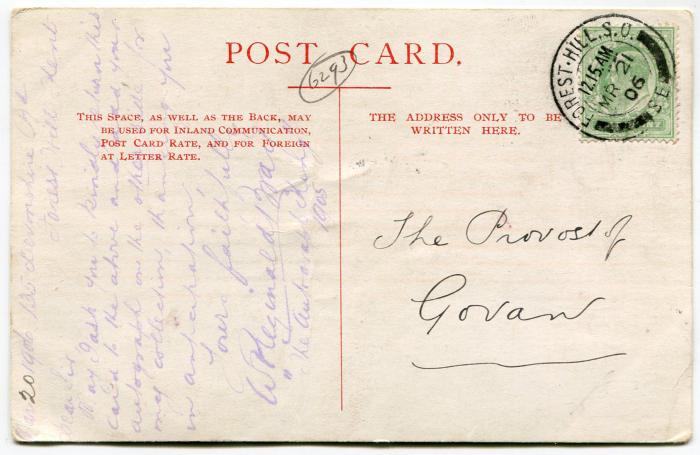 POST CARD.
6293
THIS SPACE, AS WELL AS THE BACK, MAY
BE USED FOR INLAND COMMUNICATION,
POST CARD RATE, AND FOR FOREIGN
AT LETTER RATE.
THE ADDRESS ONLY TO BE
WRITTEN HERE.
FOREST-HILL.S.O.
12.15AM
MR 21
06
S.E.
The Provost of
Govan
20 1906 Devonshire Rd
Forest Hill Kent
Dear Sir
May I ask you to kindly return this
card to the above and add your
autograph on the other side for
my collection, thanking you
in anticipation,
Yours faithfully
W Reginald
"The Autograph
1905